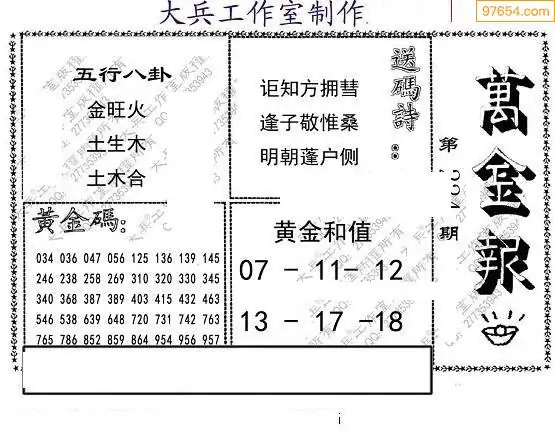 大兵工作室制作
97654.com
五行八卦
金旺火
土生木
土木合
送碼詩：
讵知方拥彗
逢子敬惟桑
明朝蓬户侧
萬金報
第
期
黃金碼：
034 036 047 056 125 136 139 145
246 238 258 269 310 320 330 345
340 368 387 389 403 415 432 463
546 538 639 648 720 731 742 763
765 786 852 859 864 954 956 957
黄金和值
07 - 11- 12
13 - 17 -18
i